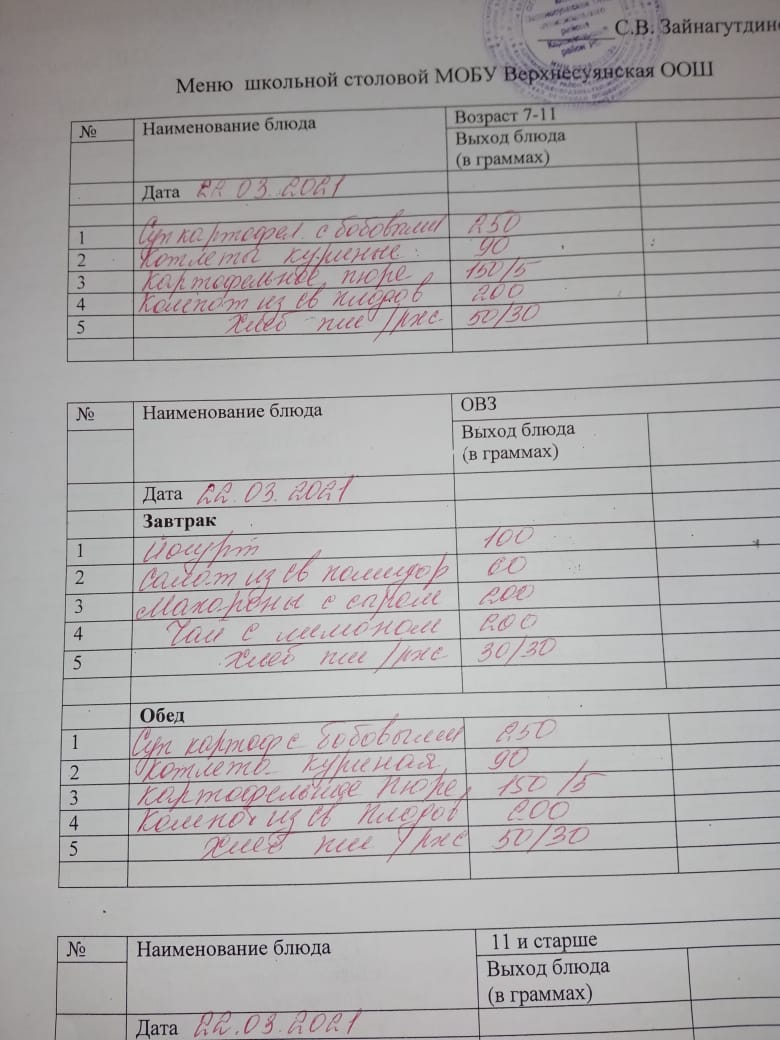 С.В. Зайнагутдино
Меню школьной столовой МОБУ Верхнесуянская ООШ
№ Наименование блюда Возраст 7-11
Выход блюда
(в граммах)
Дата 22.03.2021
1 Суп картофел. с бобовыми 250
2 Котлеты куриные 90
3 Картофельное пюре 150/5
4 Компот из св плодов 200
5 Хлеб пш/рж 50/30
№ Наименование блюда ОВЗ
Выход блюда
(в граммах)
Дата 22.03.2021
Завтрак
1 Йогурт 100
2 Салат из св помидор 60
3 Макароны с сыром 200
4 Чай с лимоном 200
5 Хлеб пш/рж 30/30
Обед
1 Суп картоф с бобовыми 250
2 Котлета куриная 90
3 Картофельное пюре 150/5
4 Компот из св плодов 200
5 Хлеб пш/рж 50/30
№ Наименование блюда 11 и старше
Выход блюда
(в граммах)
Дата 22.03.2021